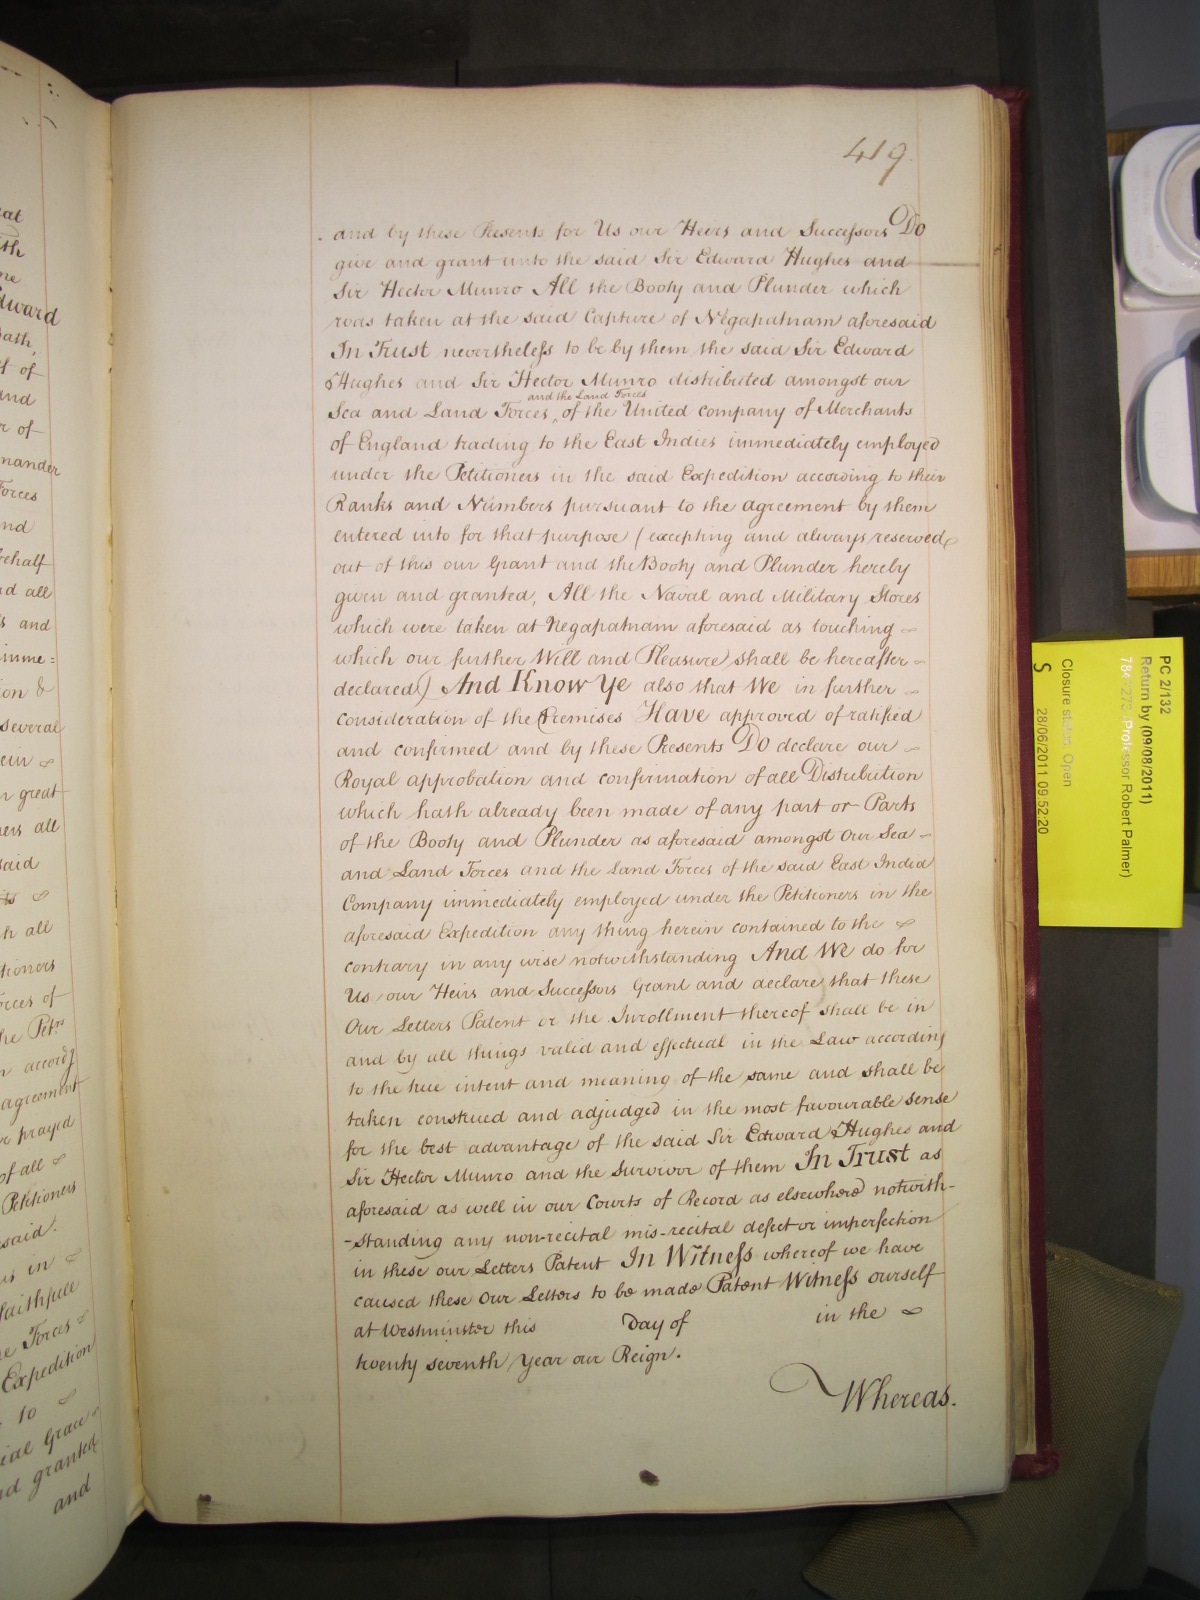 419.
and by these Presents for Us our Heirs and Successors Do
give and grant unto the said Sir Edward Hughes and
Sir Hector Munro All the Booty and Plunder which
was taken at the said Capture of Negapatnam aforesaid
In Trust nevertheless to be by them the said Sir Edward
Hughes and Sir Hector Munro distributed amongst our
and the Land Forces
Sea and Land Forces ‸ of the United Company of Merchants
of England trading to the East Indies immediately employed
under the Petitioners in the said Expedition according to their
Ranks and Numbers pursuant to the agreement by them
entered into for that purpose (excepting and always reserved
out of this our Grant and the Booty and Plunder hereby
given and granted, All the Naval and Military Stores
which were taken at Negapatnam aforesaid as touching
which our further Will and Pleasure) shall be hereafter
declared) And Know Ye also that We in further
consideration of the Premises Have approved of ratified
and confirmed and by these Presents Do declare our
Royal approbation and confirmation of all Distribution
which hath already been made of any part or Parts
of the Booty and Plunder as aforesaid amongst our Sea
and Land Forces and the Land Forces of the said East India
Company immediately employed under the Petitioners in the
aforesaid Expedition any thing herein contained to the
contrary in any wise notwithstanding And We do for
Us our Heirs and Successors Grant and declare that these
Our Letters Patent or the Inrollment thereof shall be in
and by all things valid and effectual in the Law according
to the true intent and meaning of the same and shall be
taken construed and adjudged in the most favourable sense
for the best advantage of the said Sir Edward Hughes and
Sir Hector Munro and the Survivor of them In Trust as
aforesaid as well in our Courts of Record as elsewhere notwith-
-standing any non-recital mis-recital defect or imperfection
in these our Letters Patent In Witness whereof we have
caused these Our Letters to be made Patent Witness ourself
at Westminster this Day of in the
twenty seventh Year our Reign.
Whereas.
PC 2/132
Return by (09/08/2011)
Professor Robert Palmer)
Closure status: Open
S 28/06/2011 09:52:20
dward
Bath,
t of
and
r of
mander
Forces
and
behalf
d all
s and
imme:
ion &
several
ein
n great
ners all
said
h all
tioners
orces of
he Petrs
n accordg
agreement
r prayed
of all
Petitioners
said.
us in
faithfull
e Forces
Expedition
to
ial Grace
nd granted
and